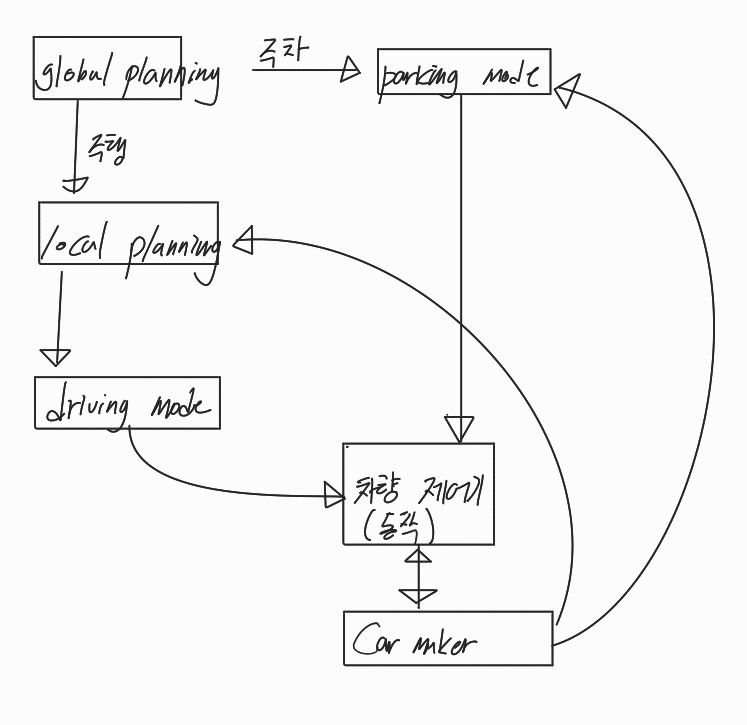 global planning
주차
parking mode
주행
local planning
driving mode
차량 제어
(동작)
Car mker